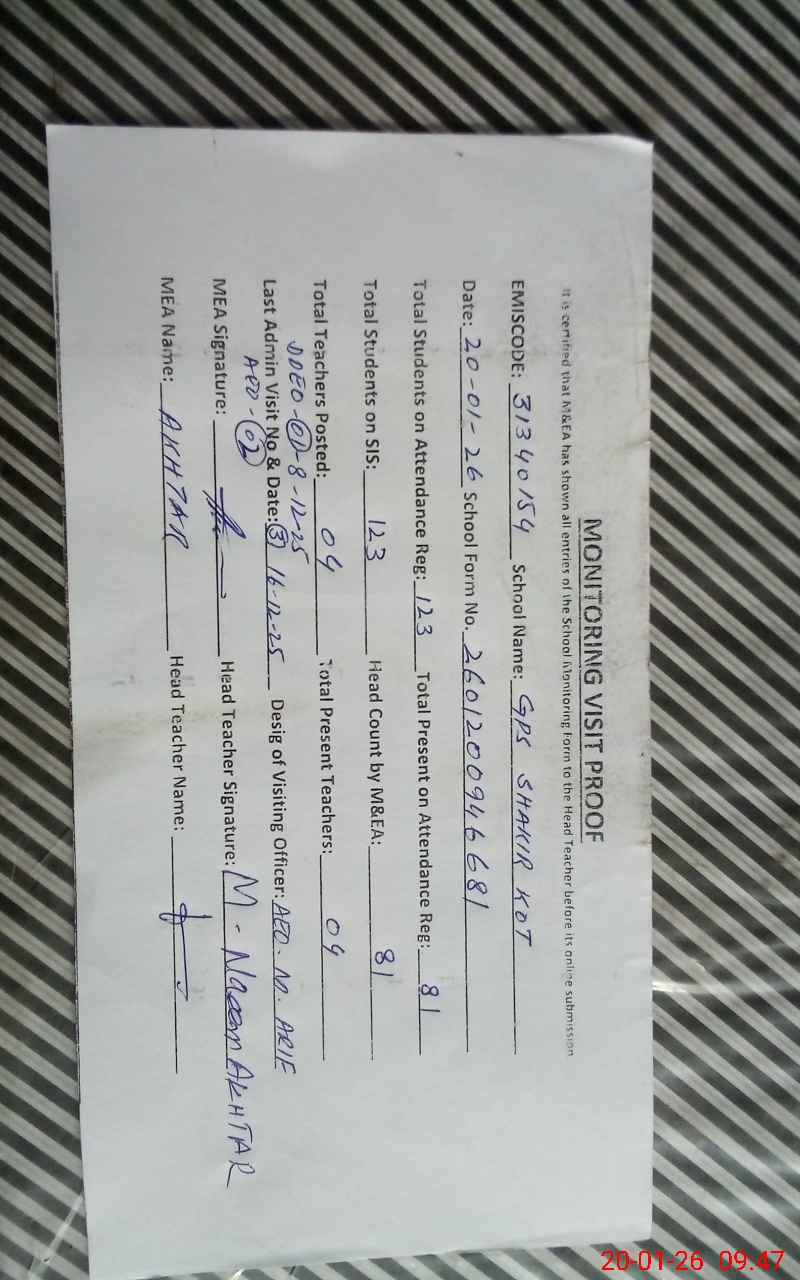 MONITORING VISIT PROOF
It is certified that M&EA has shown all entries of the School Monitoring Form to the Head Teacher before its online submission
EMISCODE: 31340154 School Name: GPS SHAKIR KOT
Date: 20-01-26 School Form No. 2601200946681
Total Students on Attendance Reg: 123 Total Present on Attendance Reg: 81
Total Students on SIS: 123 Head Count by M&EA: 81
Total Teachers Posted: 04 Total Present Teachers: 04
DDEO-01-8-12-25
Last Admin Visit No & Date: 3 16-12-25 Desig of Visiting Officer: AEO. M. ARIF
AEO-02
MEA Signature: Head Teacher Signature: M. Naeem AKHTAR
MEA Name: AKHTAR Head Teacher Name:
20-01-26 09:47